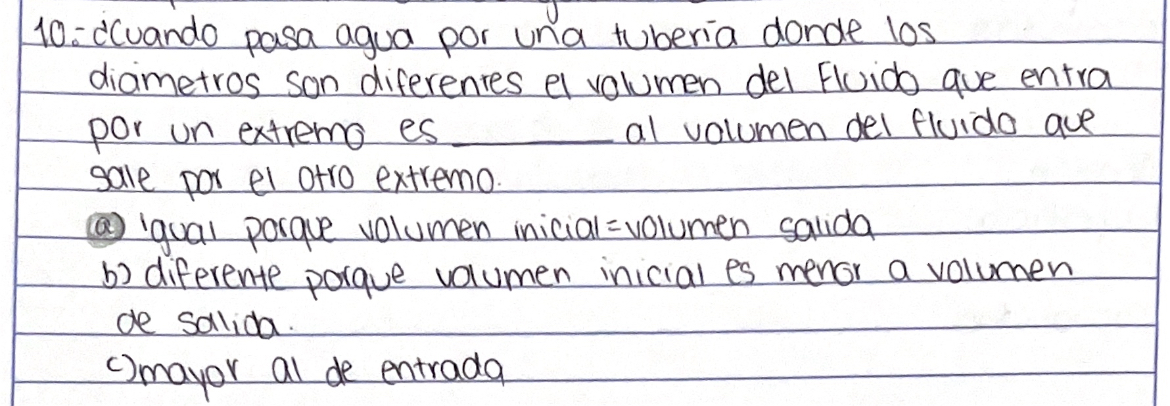 10.- ¿Cuando pasa agua por una tubería donde los
diámetros son diferentes el volumen del Fluido que entra
por un extremo es __________ al volumen del fluido que
sale por el otro extremo.
a) igual porque volumen inicial=volumen salida
b) diferente porque volumen inicial es menor a volumen
de salida.
c) mayor al de entrada